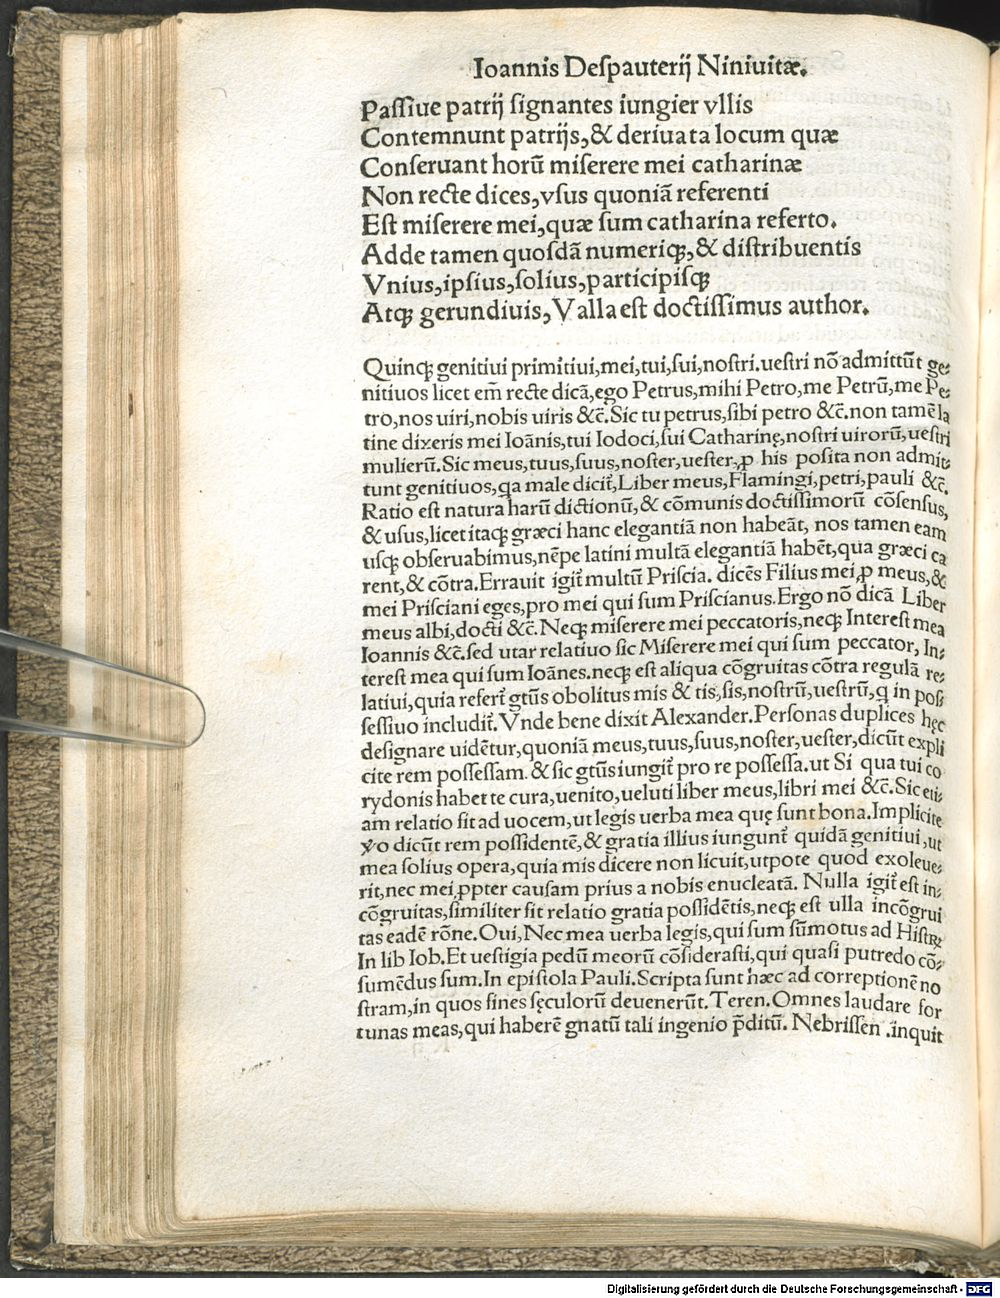 Ioannis Deſpauterij Niniuitæ.
Paſſiue patrij ſignantes iungier vllis
Contemnunt patrijs,& deriuata locum quæ
Conſeruant horū miſerere mei catharinæ
Non recte dices,vſus quoniā referenti
Eſt miſerere mei,quæ ſum catharina referto.
Adde tamen quoſdā numeriq;,& diſtribuentis
Vnius,ipſius,ſolius,participiſq;
Atq; gerundiuis,Valla eſt doctiſſimus author.
Quinq; genitiui primitiui,mei,tui,ſui,noſtri.ueſtri nō admittūt ge⸗
nitiuos licet em̄ recte dicā,ego Petrus,mihi Petro,me Petrū,me Pe⸗
tro,nos uiri,nobis uiris &c̄.Sic tu petrus,ſibi petro &c̄.non tamē la
tine dixeris mei Ioānis,tui Iodoci,ſui Catharinę,noſtri uirorū,ueſtri
mulierū.Sic meus,tuus,ſuus,noſter,ueſter,ꝓ his poſita non admit⸗
tunt genitiuos,qa male dicit̄,Liber meus,Flamingi,petri,pauli &c̄.
Ratio eſt natura harū dictionū,& cōmunis doctiſſimorū cōſenſus,
& uſus,licet itaq; græci hanc elegantiā non habeāt, nos tamen eam
uſq; obſeruabimus,nēpe latini multā elegantiā habēt,qua græci ca
rent,& cōtra.Errauit igit̄ multū Priſcia. dicēs Filius mei,ꝓ meus,&
mei Priſciani eges,pro mei qui ſum Priſcianus.Ergo nō dicā Liber
meus albi,docti &c̄.Neq; miſerere mei peccatoris,neq; Intereſt mea
Ioannis &c̄.ſed utar relatiuo ſic Miſerere mei qui ſum peccator, In⸗
tereſt mea qui ſum Ioānes.neq; eſt aliqua cōgruitas cōtra regulā re⸗
latiui,quia refert̄ gtūs obolitus mis & tis,ſis,noſtrū,ueſtrū,q̨ in poſ⸗
ſeſſiuo includit̄.Vnde bene dixit Alexander.Perſonas duplices hęc
deſignare uidētur,quoniā meus,tuus,ſuus,noſter,ueſter,dicūt expli
cite rem poſſeſſam.& ſic gtūs iungit̄ pro re poſſeſſa.ut Si qua tui co
rydonis habet te cura,uenito,ueluti liber meus,libri mei &c̄.Sic eti⸗
am relatio fit ad uocem,ut legis uerba mea quę ſunt bona.Implicite
ꝟo dicūt rem poſſidentē,& gratia illius iungunt̄ quidā genitiui,ut
mea ſolius opera,quia mis dicere non licuit,utpote quod exoleue⸗
rit,nec mei,ꝓpter cauſam prius a nobis enucleatā. Nulla igit̄ eſt in⸗
cōgruitas,ſimiliter fit relatio gratia poſſidētis,neq; eſt ulla incōgrui
tas eadē rōne.Oui,Nec mea uerba legis,qui ſum ſūmotus ad Hiſtrꝝ
In lib Iob.Et ueſtigia pedū meorū cōſideraſti,qui quaſi putredo cō⸗
ſumēdus ſum.In epiſtola Pauli.Scripta ſunt hæc ad correptionē no
ſtram,in quos fines ſęculorū deuenerūt.Teren.Omnes laudare for
tunas meas,qui haberē gnatū tali ingenio p̄ditū. Nebriſſen .inquit
Digitalisierung gefördert durch die Deutsche Forschungsgemeinschaft - DFG